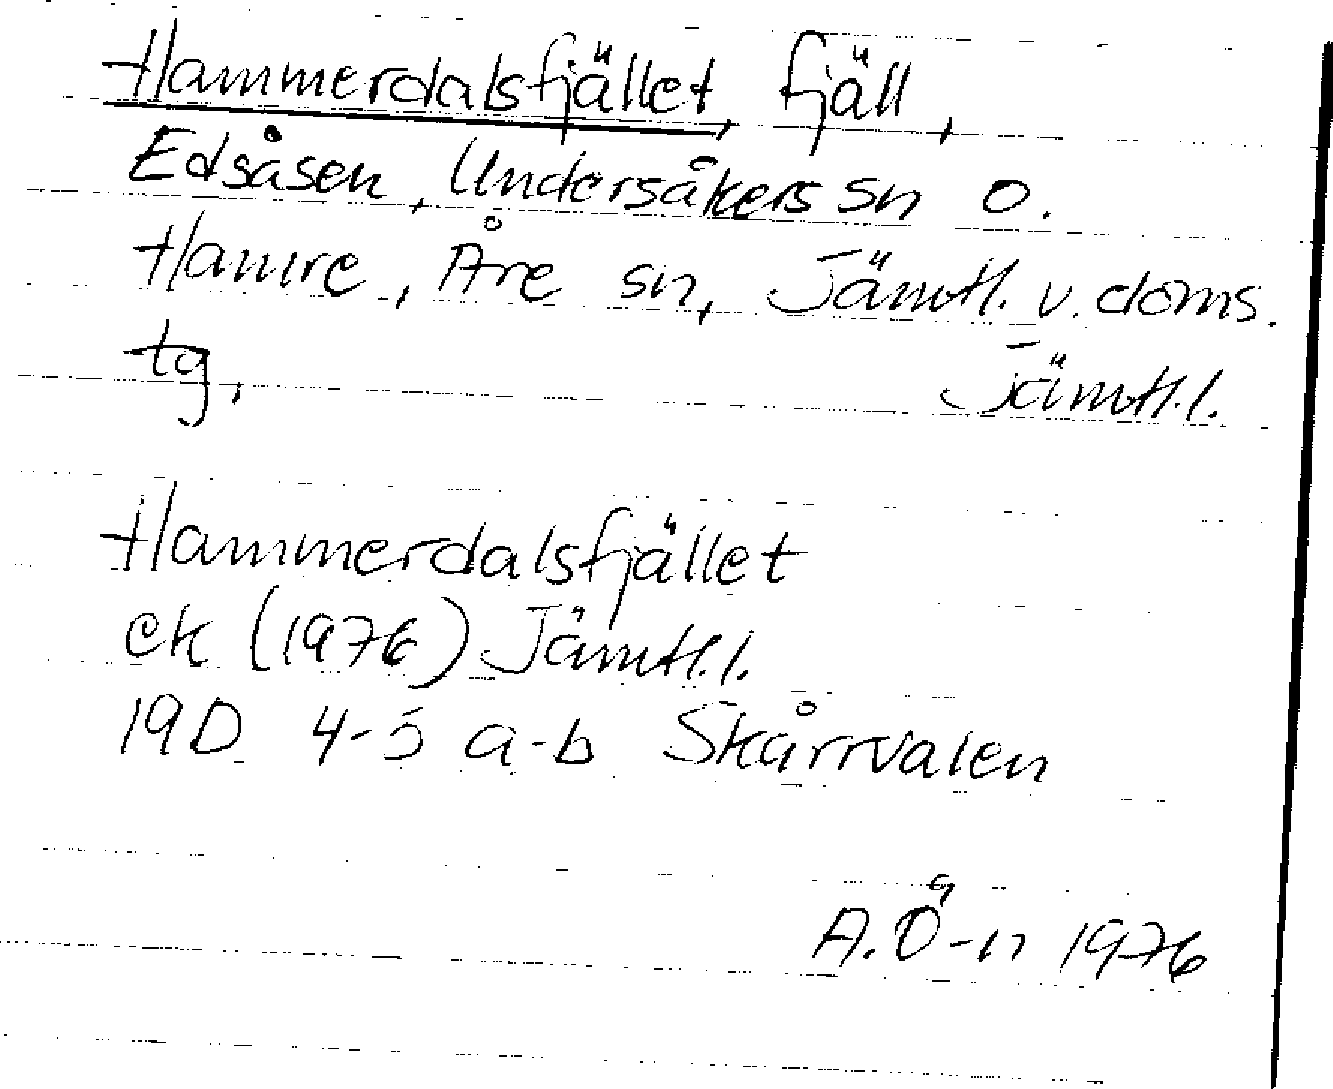 Hammerdalsfjället, fjäll,
Edsåsen, Undersåkers sn o.
Hamre, Åre sn, Jämtl. v. doms.
tg,
Jämtl.l.
Hammerdalsfjället
ek (1976) Jämtl.l.
19D 4-5 a-b Skårrvalen
A.Ö-n 1976